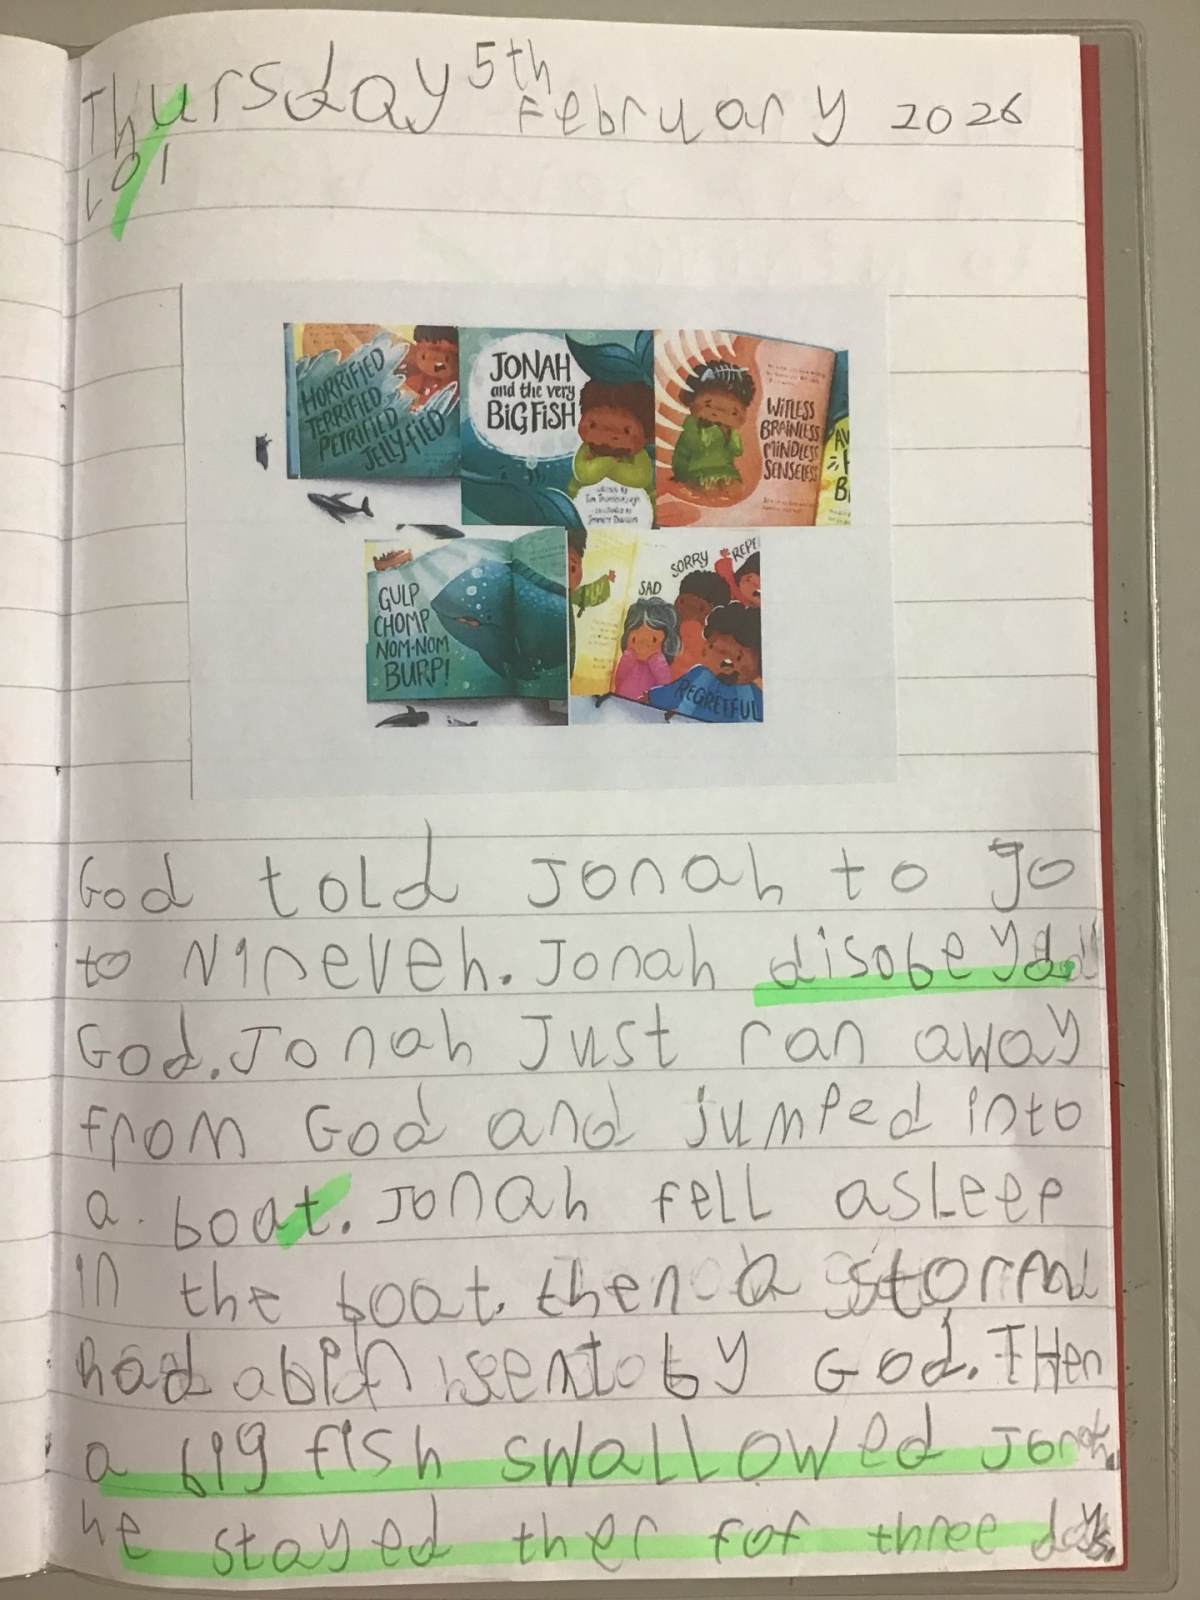 Thursday 5th February 2026
LO1
HORRIFIED
TERRIFIED
PETRIFIED
JELLY-FIED
JONAH
and the very
BIG FISH
WITLESS
BRAINLESS
MINDLESS
SENSELESS
GULP
CHOMP
NOM-NOM
BURP!
SAD
SORRY
REPE
REGRETFUL
God told Jonah to go
to Nineveh. Jonah disobeyd
God. Jonah Just ran away
from God and jumped into
a. boat. Jonah fell asleep
in the boat. then a storm
had a been sent by God. THen
a big fish swallowed Jonah.
he stayed ther for three days.